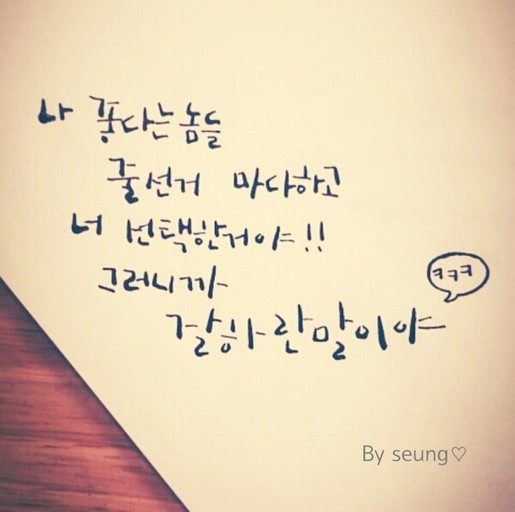 나 좋다는놈들
줄선거 마다하고
너 선택한거야!!
그러니까
잘하란말이야
ㅋㅋㅋ
By seung♡